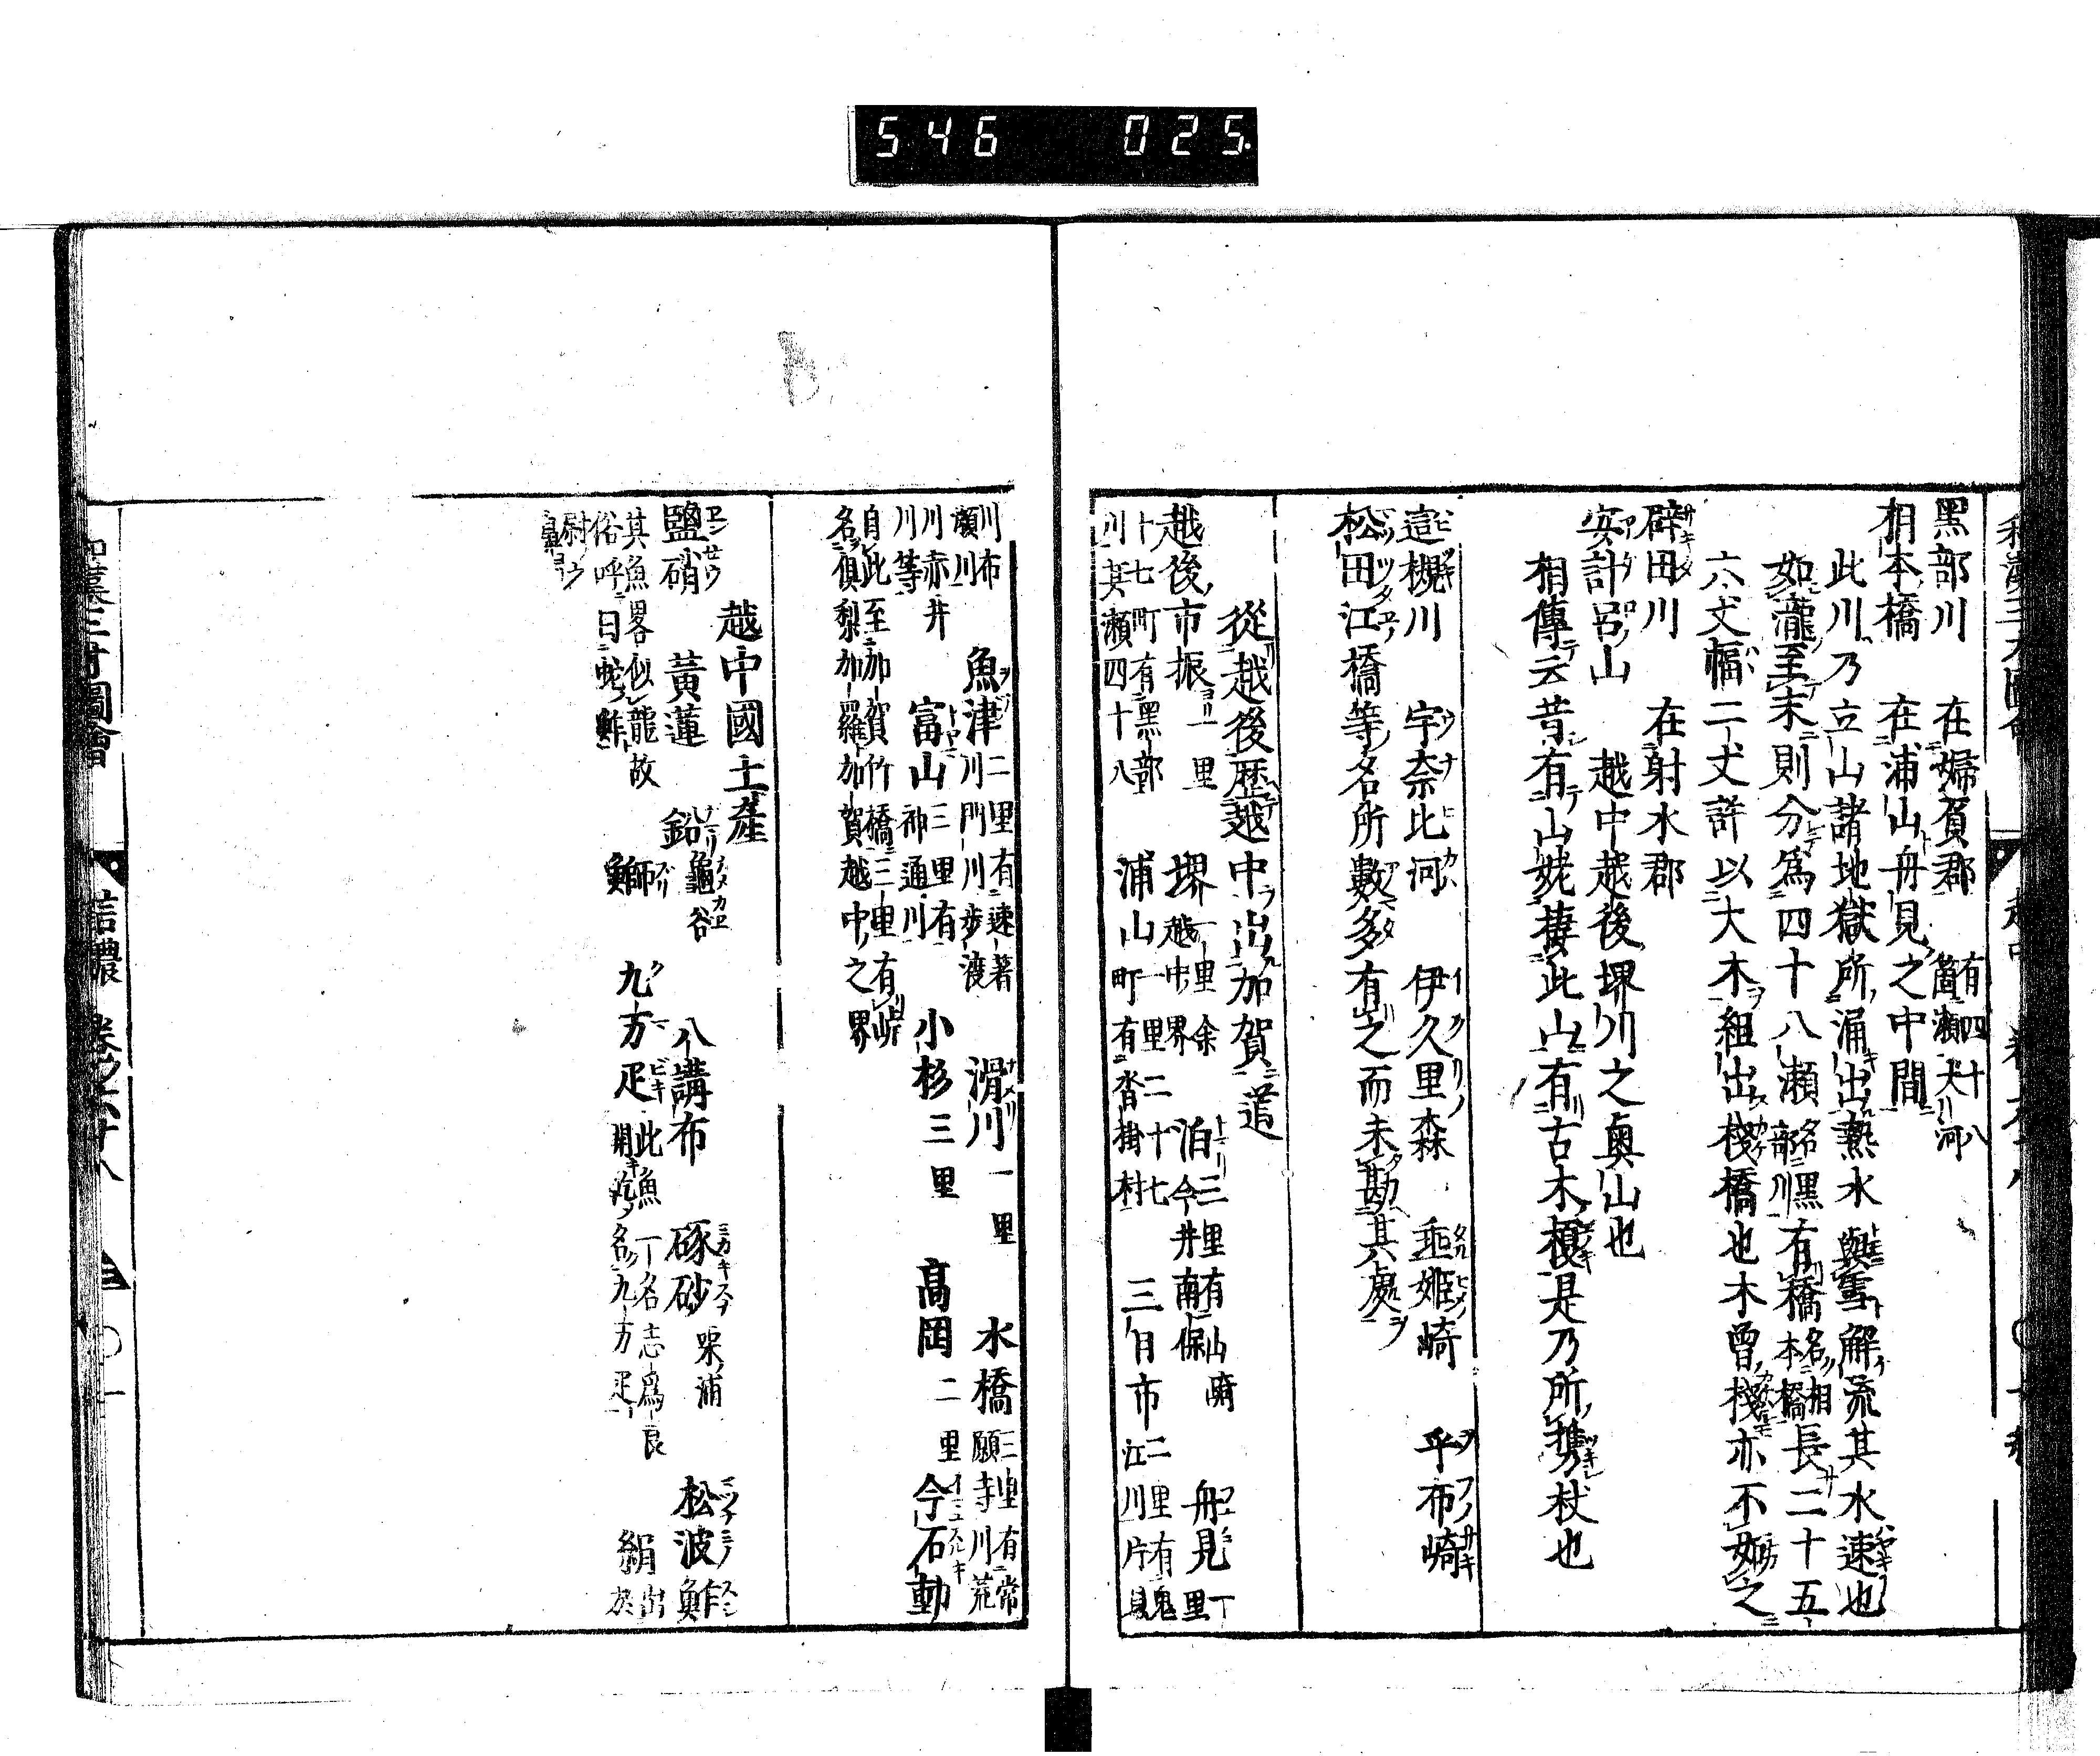 546 025.
黑部川 在婦負郡 有四十八箇瀬大河
相本橋 在浦山舟見之中間
此川乃立山諸地獄所涌出熱水與雪解流其水速也
如瀧至末則分爲四十八瀬名黒部川有橋名相本橋長二十五
六丈幅二丈許以大木組出棧橋也木曽棧亦不如之
辟田川 在射水郡
安計呂山 越中越後堺川之奥山也
相傳云昔有山姥棲此山有古木榎是乃所携杖也
這槻川 宇奈比河 伊久里森 垂姫崎 乎布崎
松田江橋等名所數多有之而未勘其處
從越後歷越中出加賀道
越後市振 一里 堺 一里余越中界 泊 三里有山嵜今井南保 舟見 丁里
十七町有黑部川其瀬四十八 浦山 一里二十七町有沓掛村 三日市 二里有鬼江川片貝
川布瀬川 魚津 二里有速川門川歩渡 滑川 一里 水橋 三里有常願寺川荒
川赤井川等 富山 三里有神通川 小杉 三里 高岡 二里 今石動
自此至加賀竹橋三里有峠名倶梨加羅加賀越中之界
越中國土產
鹽硝 黃蓮 鉛 龜谷 八講布 砥砂 松波鮓
其魚畧似龍故俗呼曰蛇鮓 鰤 九万疋 此魚一名志爲良開乾名九万疋 絹
和漢三才圖會 信濃 卷之六十八